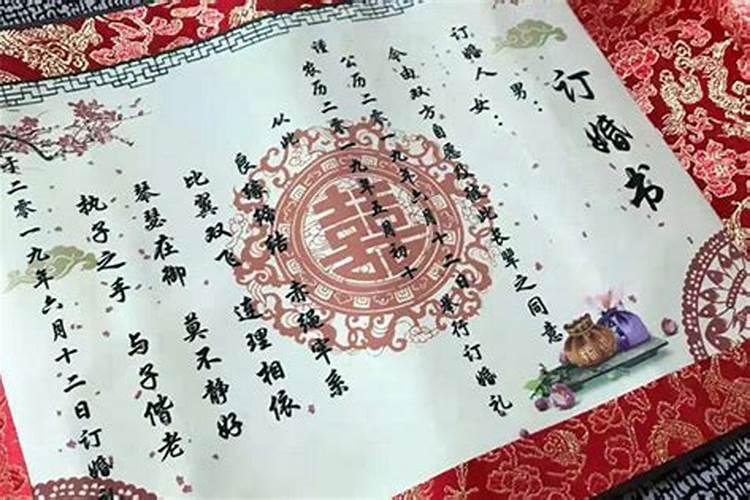 订婚书
订婚人 男：
女：
今由双方自愿及彼此长辈之同意
公历二零一九年六月十二日举行订婚礼
谨农历二零一九年五月初十
从此 良缘缔结 赤绳牢系
比翼双飞 连理相依
琴瑟在御 莫不静好
执子之手 与子偕老
于二零一九年六月十二日订婚